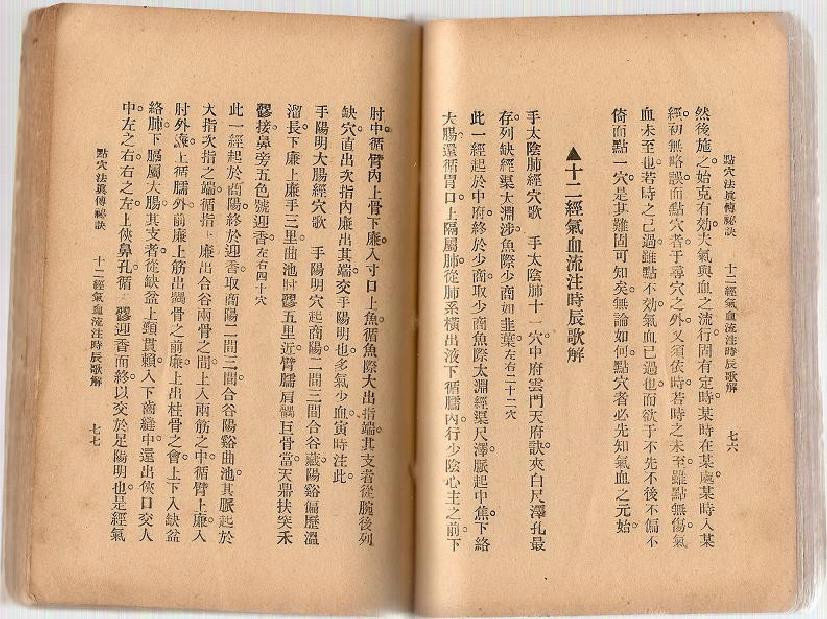 點穴法眞傳祕訣 十二經氣血流注時辰歌解 七六
然後施之。始克有効。夫氣與血之流行。固有定時。某時在某處。某時入某
經。初無略誤。而點穴者。于尋穴之外。又須依時。若時之未至。雖點無傷。氣
血未至也。若時之已過。雖點不効。氣血已過也。而欲于不先不後不偏不
倚而點一穴。是其難固可知矣。無論如何。點穴者必先知氣血之元始。
▲十二經氣血流注時辰歌解
手太陰肺經穴歌 手太陰肺十一穴。中府雲門天府訣。夾白尺澤孔最
存。列缺經渠太淵涉。魚際少商如韭葉。左右二十二穴
此一經起於中府。終於少商。取少商魚際太淵經渠尺澤。脈起中焦。下絡
大腸。還循胃口。上隔屬肺。從肺系橫出液下。循臑內。行少陰心主之前。下
肘中。循臂內上骨下廉。入寸口上魚。循魚際大出指端。其支者。從腕後列
缺穴直出次指內廉。出其端。交手陽明也。多氣少血。寅時注此。
手陽明大腸經穴歌 手陽明穴起商陽。二間三間合谷藏。陽谿偏歷溫
溜長。下廉上廉手三里。曲池肘髎五里近。臂臑肩髃巨骨當。天鼎扶突禾
髎接。鼻旁五色號迎香。左右四十穴
此一經起於商陽。終於迎香。取商陽二間三間合谷陽谿曲池。其脈起於
大指次指之端。循指上廉。出合谷兩骨之間。上入兩筋之中。循臂上廉。入
肘外廉。上循臑外前廉。上筋出髃骨之前廉。上出柱骨之會。上下入缺盆
絡肺。下膈屬大腸。其支者。從缺盆上頸貫頰。入下齒縫中。還出俠口。交人
中。左之右。右之左。上俠鼻孔。循髎迎香而終。以交於足陽明也。是經氣
點穴法眞傳祕訣 十二經氣血流注時辰歌解 七七